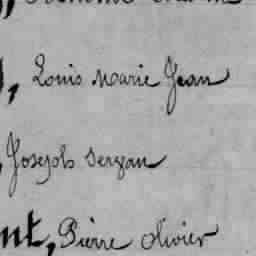 , Louis Marie Jean
, Joseph Serzan
nt, Pierre Olivier